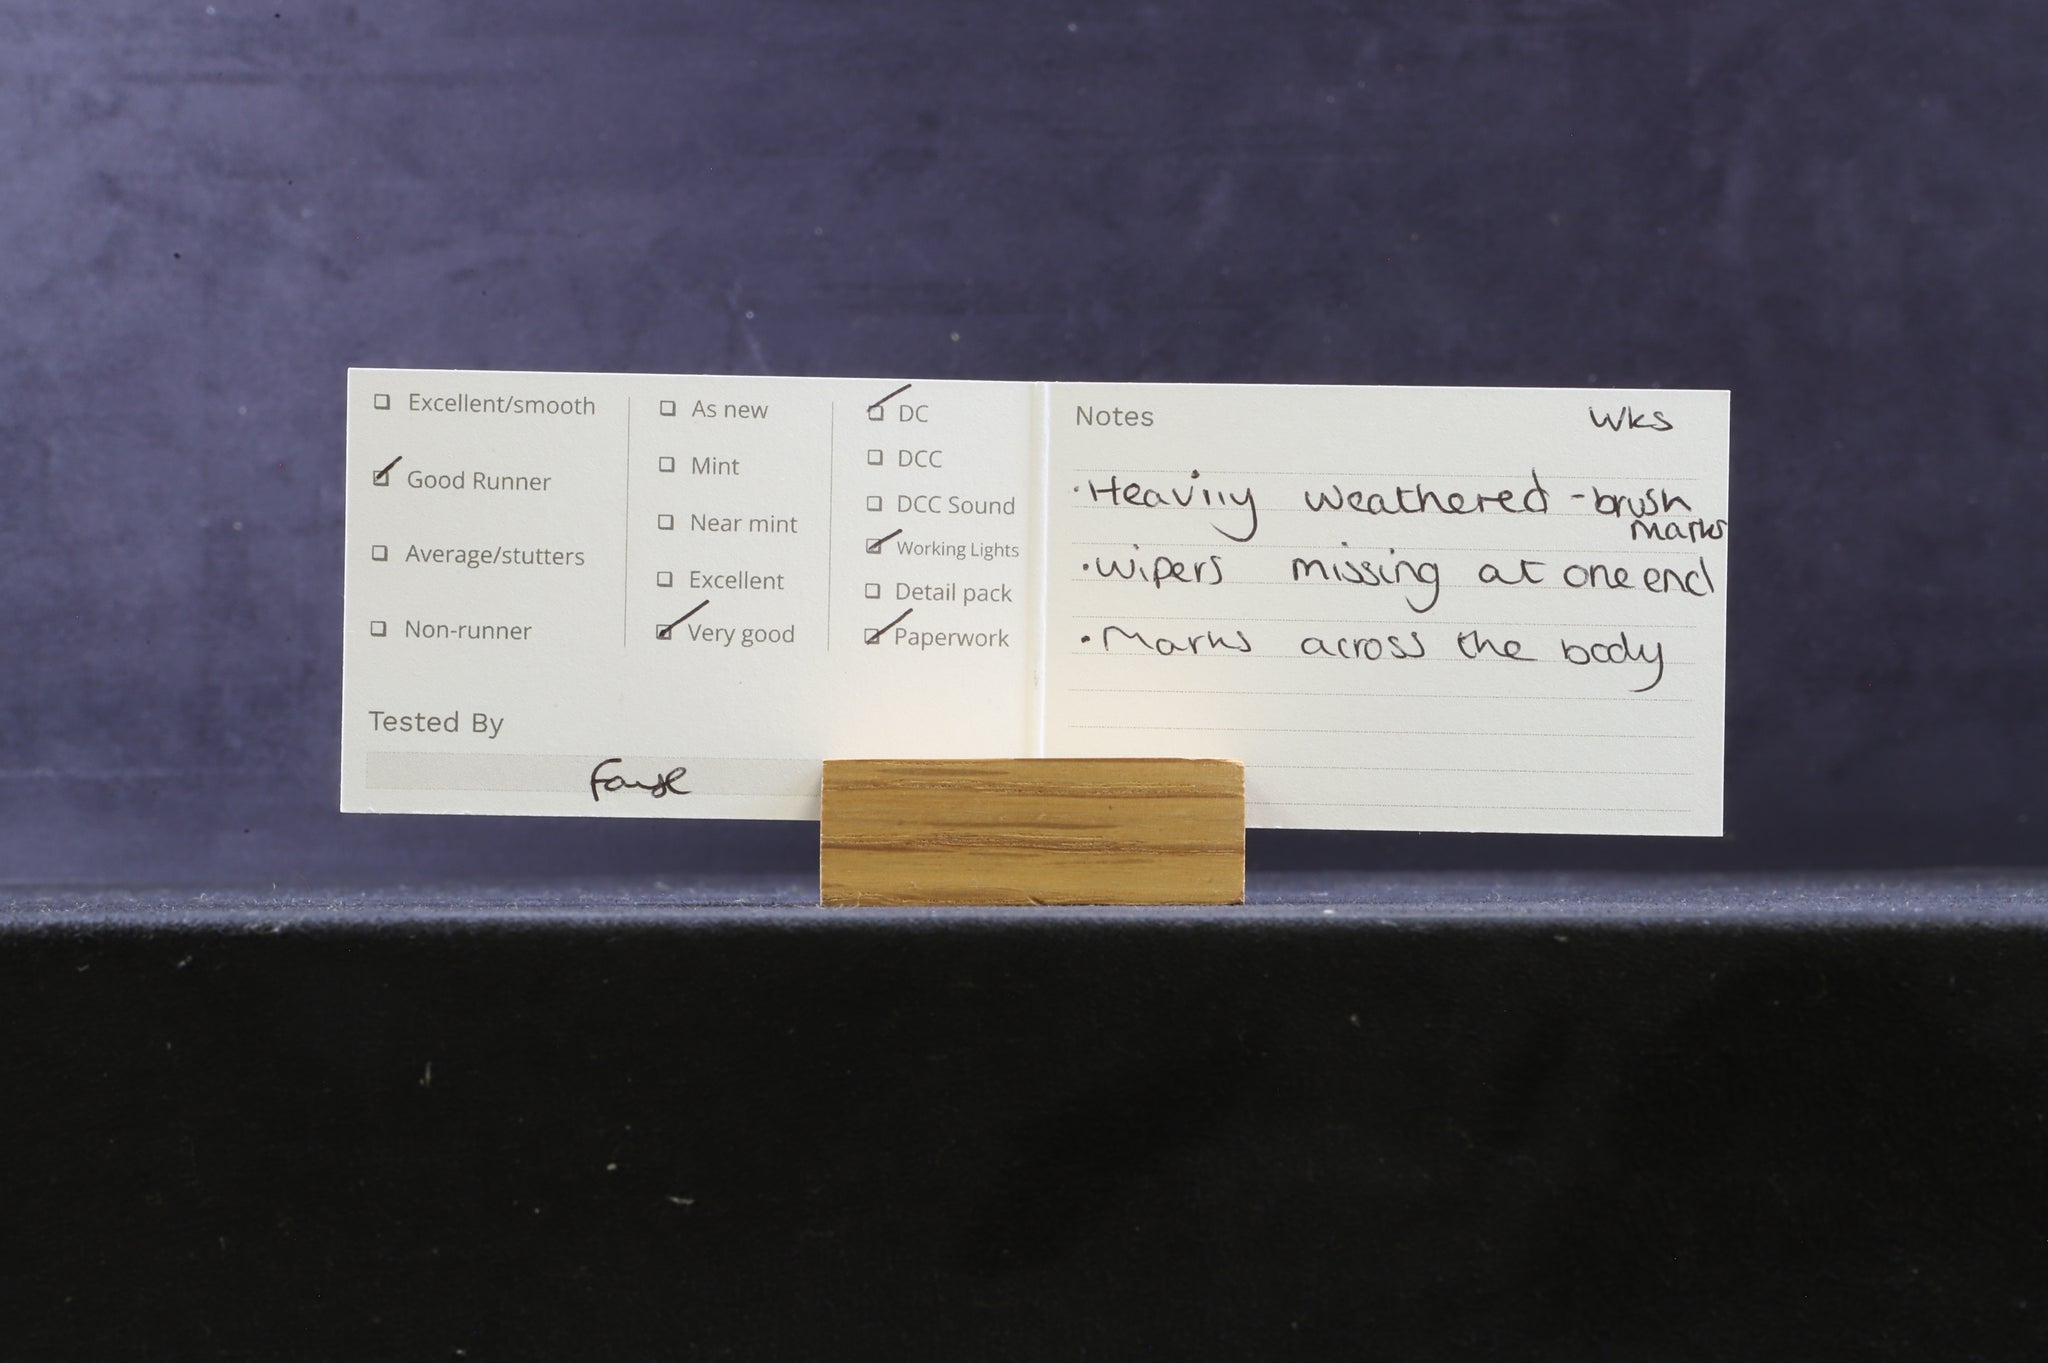 Excellent/smooth
Good Runner
Average/stutters
Non-runner
As new
Mint
Near mint
Excellent
Very good
DC
DCC
DCC Sound
Working Lights
Detail pack
Paperwork
Tested By
Notes
WKS
·Heavily weathered - brush
marks
·Wipers missing at one end
·Marks across the body